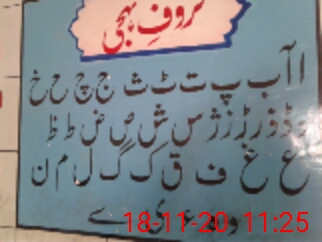 حروفِ تہجی
ا آ ب پ ت ٹ ث ج چ ح خ
د ڈ ذ ر ڑ ز ژ س ش ص ض ط ظ
ع غ ف ق ک گ ل م ن
و ہ ء ی ے
18-11-20 11:25